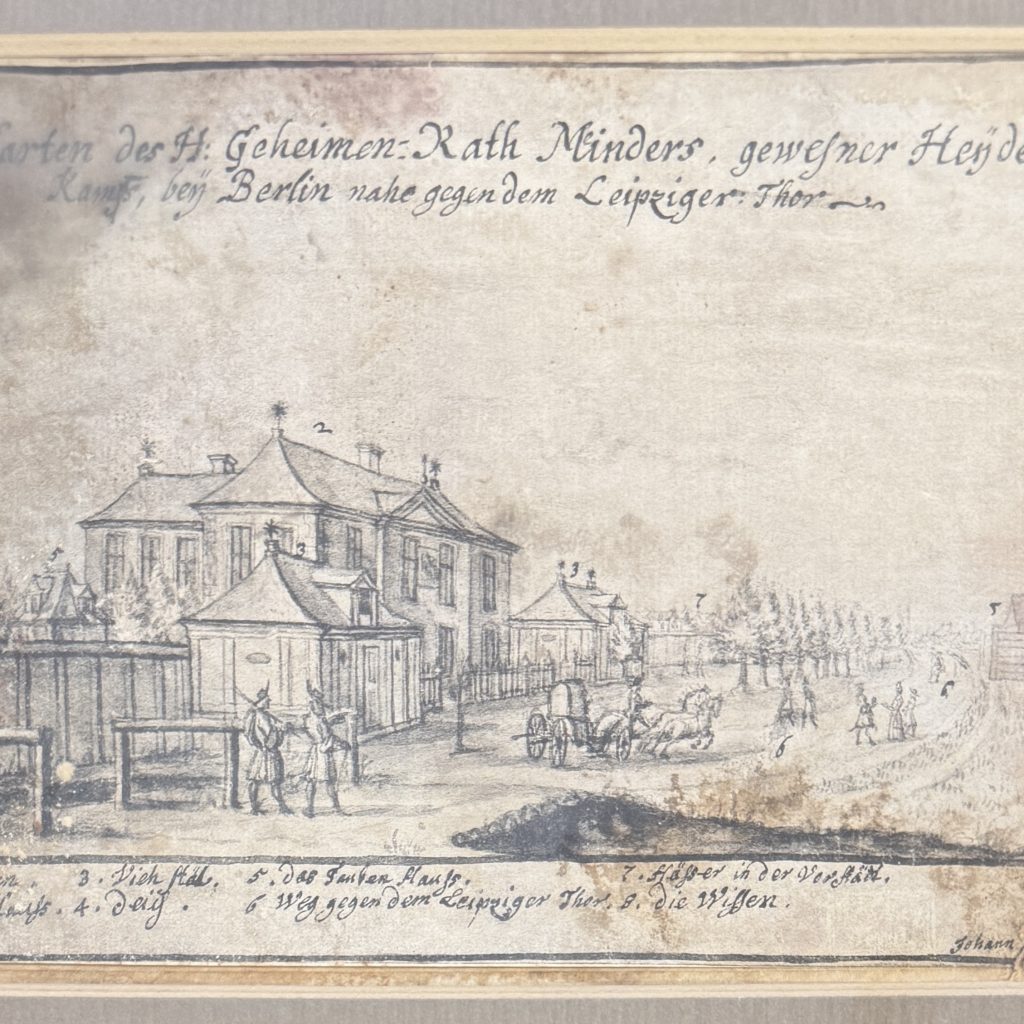 arten des H: Geheimen-Rath Minders, gewesner Heyde
Kamps, bey Berlin nahe gegen dem Leipziger Thor
2
3
5
3
7
5
6
6
3. Vieh stäl. 5. das Tauben Hauss. 7. HäSser in der Vorstätt.
4. 6 Weg gegen dem Leipziger Thor. 8. die Wissen.
Johann